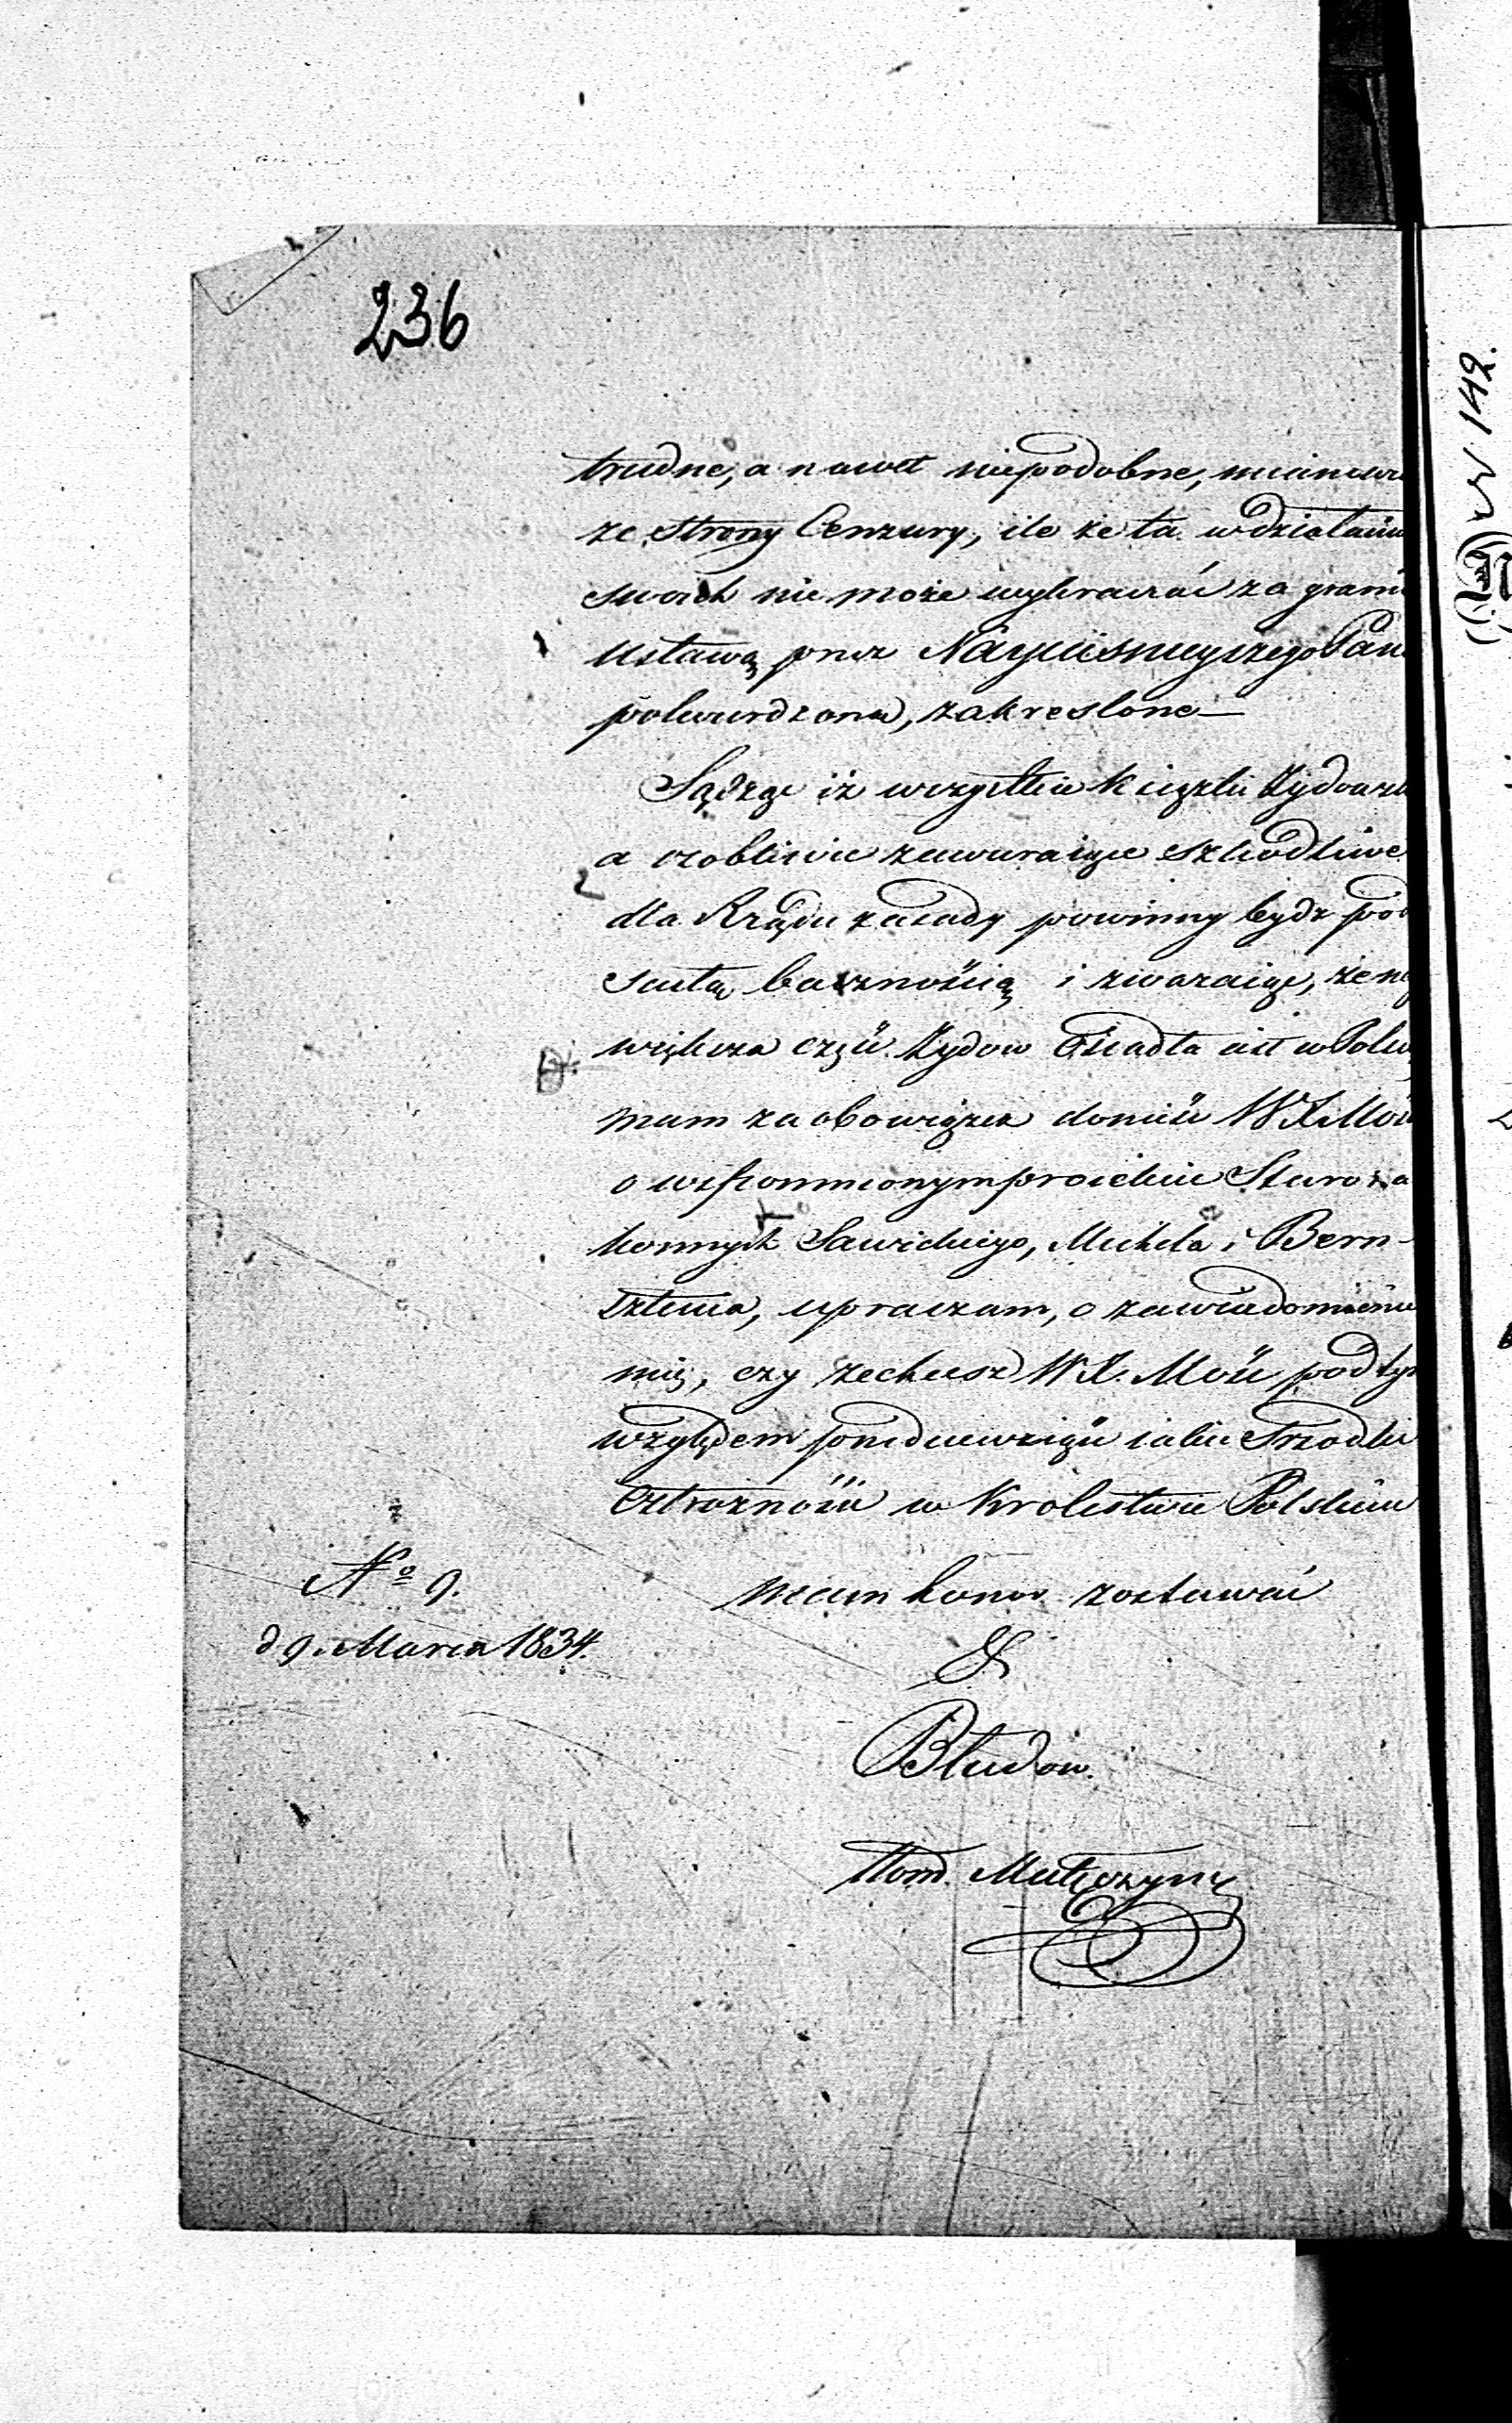 236
trudne, a nawet niepodobne, mianowi
ze strony Cenzury, ile że ta w działaniu
swoich nie może wykraczać za grani
ustawą przez Nayjaśnieyszego Pana
potwierdzoną, zakreslone—
Sądzę iż wszystkie książki Żydowsk
a osobliwie zawieraiące szkodliwe
dla Rządu zasady powinny bydz pod
scisłą bacznością i zwazaiąc, że nay
większa częśc Żydow osiadła iest w Polsc
mam za obowiązek donieśc WX Mośc
o wspomnionym proiekcie Staroza
konnych Sawickiego, Michela i Bern-
szteina, upraszam, o zawiadomienie
mię, czy zechcesz WX. Mośc pod tym
względem przedsiewziąśc iakie Srzodki
ostrożności w Krolestwie Polskiem
Nº 9.
mam honor zostawać
d 9. Marca 1834.
&
Błudow.
Tłom. Matuszyns
142.